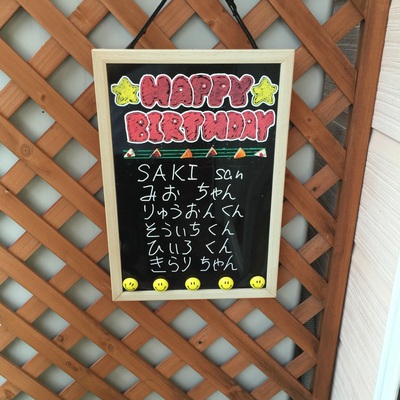 HAPPY
BIRTHDAY
SAKI san
みお ちゃん
りゅうおん くん
そういち くん
ひいろ くん
きらり ちゃん